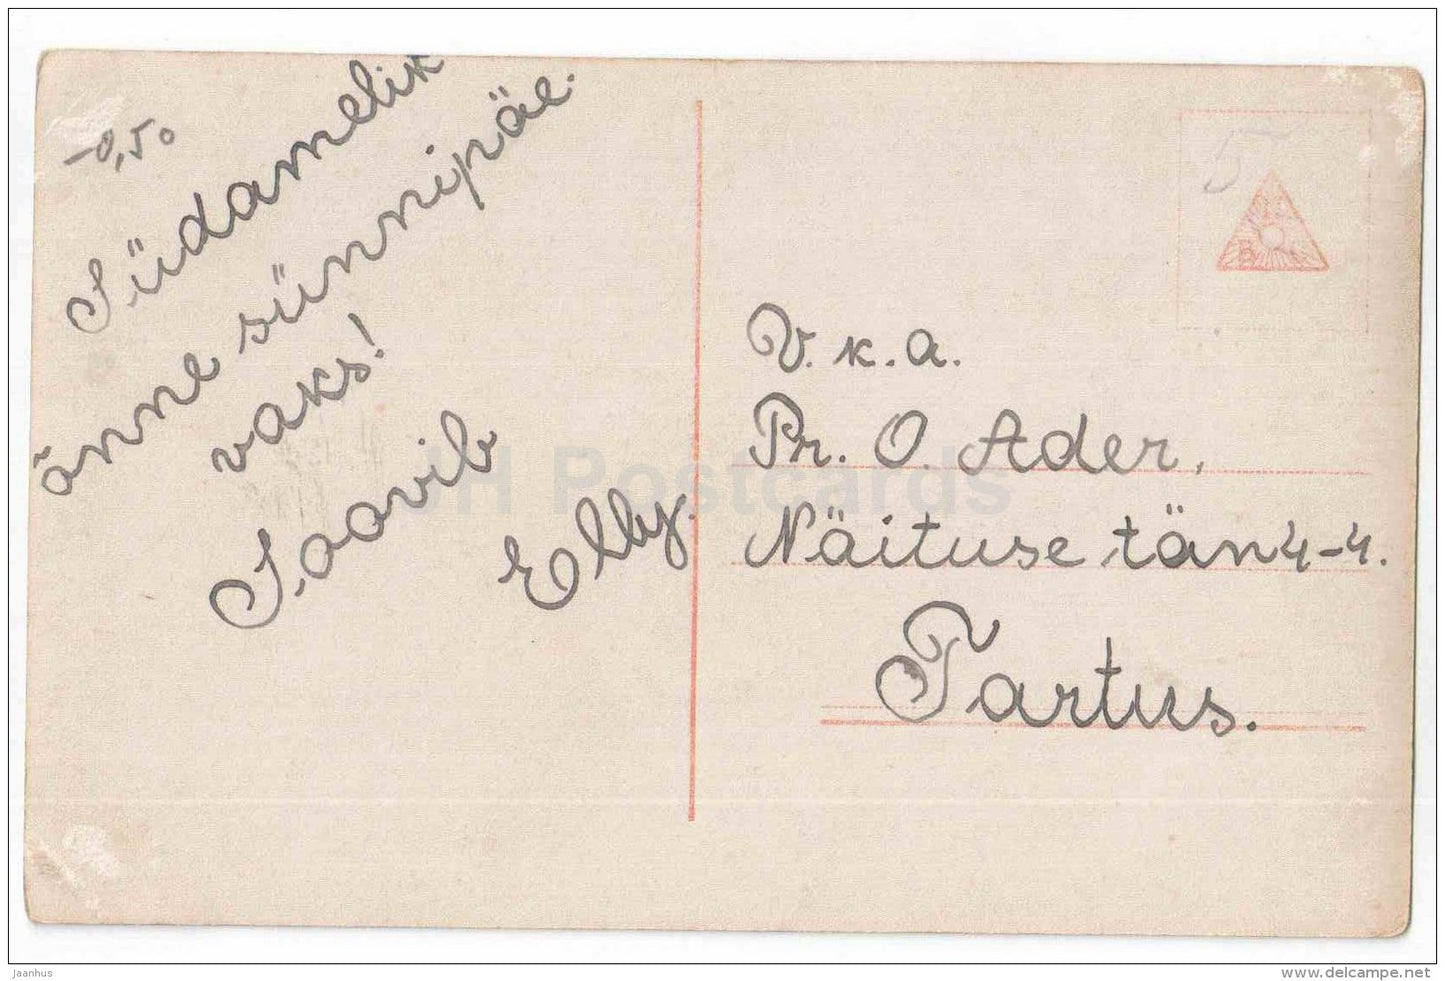 -0,50
Südamelik
õnne sünnipäe.
vaks!
Soovib
Elly.
5
B
V. k. a.
Pr. O. Ader,
Näituse tän 4-4.
Tartus.
JH Postcards
jaanhus
www.delcampe.net